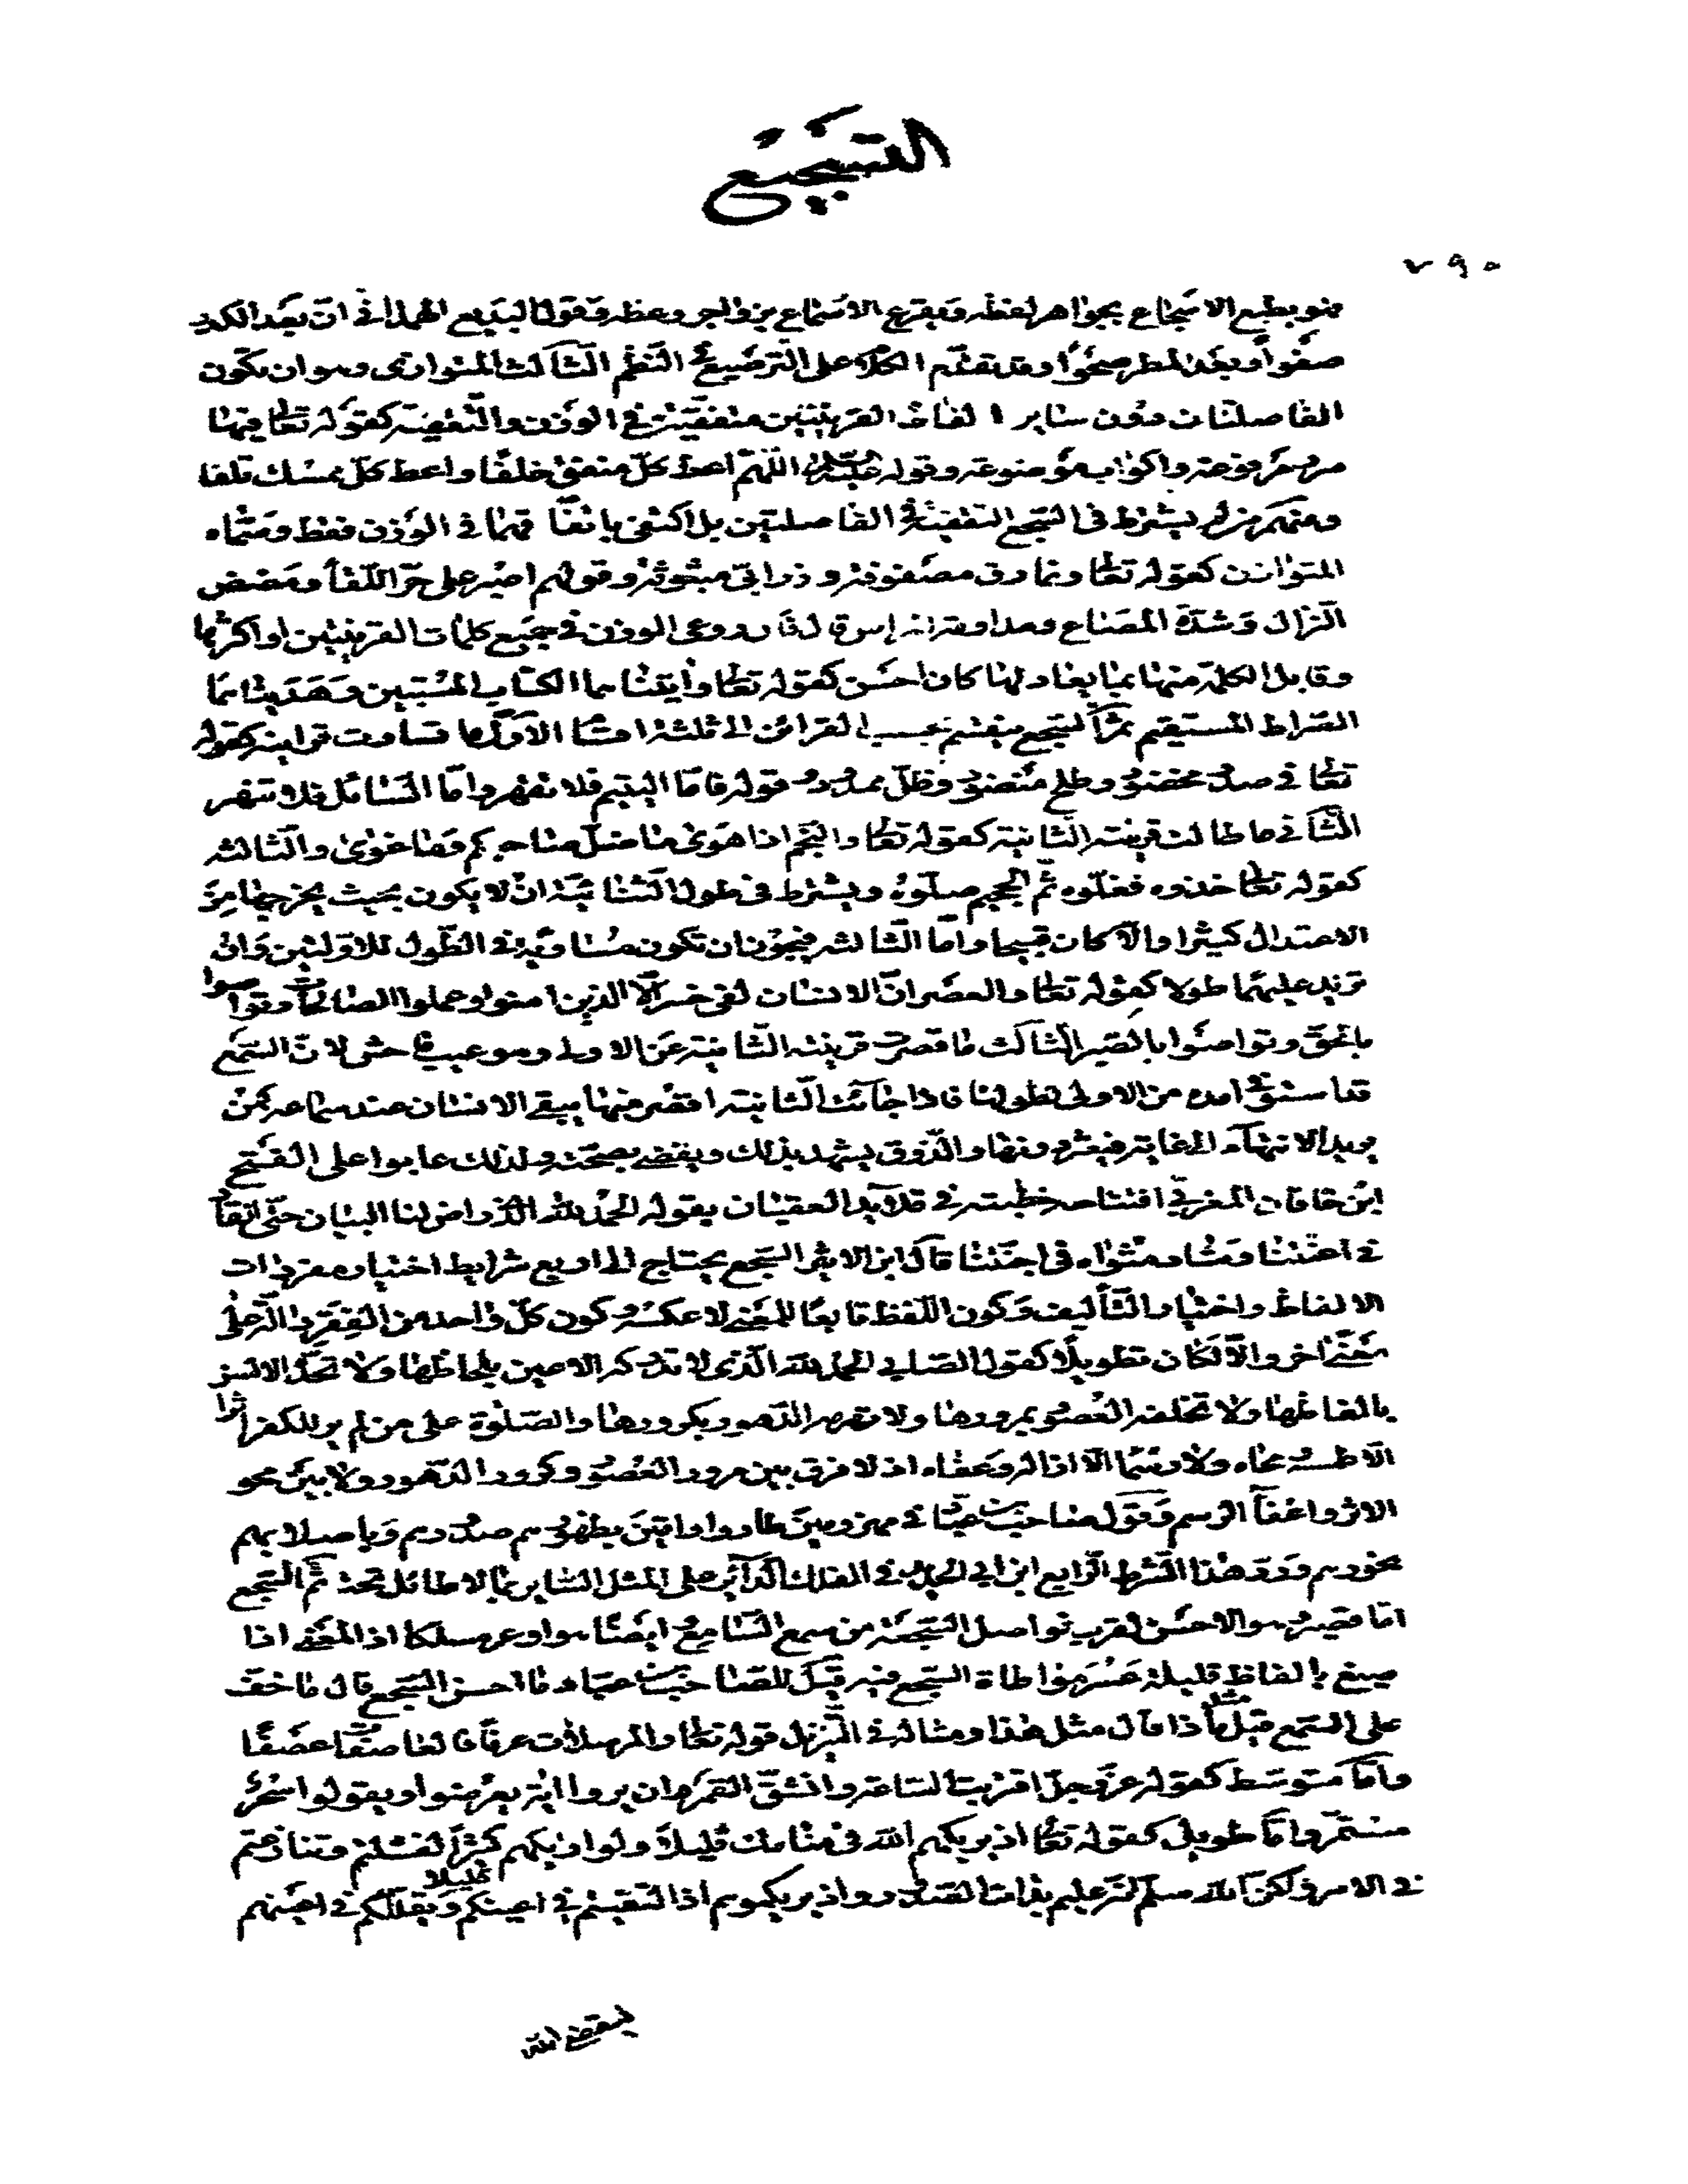 التسجيع
٧٩٠
فهو يطبع الاسجاع بجواهر لفظه ويقرع الاسماع بزواجر وعظه وقول البديع الهمداني ان بعد الكدر
صفواً وبعد المطر صحواً وقد تقدم الكلام على الترصيع في النظم الثالث المتوازي وهو ان تكون
الفاصلتان دون ساير الفاظ القرينتين متفقتين في الوزن والتقفية كقوله تعالى فيها
سرر مرفوعة واكواب موضوعة وقوله اللهم اعط كلّ منفق خلفًا واعط كلّ ممسك تلفا
ومنهم من لم يشترط في السجع التقفية في الفاصلتين بل اكتفى باتفاقهما في الوزن فقط وسماه
المتوازن كقوله تعالى ونمارق مصفوفة وزرابي مبثوثة وقولهم اصبر على حرّ اللقاء ومضض
النزال وشدة المصاع روعى الوزن في جميع كلمات القرينتين او اكثرها
وقابل الكلمة منها بما يعادلها كان احسن كقوله تعالى واتيناهما الكتاب المستبين وهديناهما
الصراط المستقيم ثم السجع ينقسم بحسب القرائن الى ثلثة اقسام الاول ما تساوت قراينه كقوله
تعالى في سدر مخضود وطلح منضود وظل ممدود وقوله فاما اليتيم فلا تقهر واما السائل فلا تنهر
الثاني ما طالت قرينته الثانية كقوله تعالى والنجم اذا هوى ما ضل صاحبكم وما غوى والثالثة
كقوله تعالى خذوه فغلوه ثم الجحيم صلوه ويشترط في طول الثانية ان لا يكون بحيث يخرجها من
الاعتدال كثيرا والا كان قبيحا واما الثالثة فيجوز ان تكون مساوية في الطول للاولتين وان
تزيد عليهما طولا كقوله تعالى والعصر ان الانسان لفي خسر الا الذين امنوا وعملوا الصالحات وتواصوا
بالحق وتواصوا بالصبر الثالث ما قصرت قرينته الثانية عن الاولى وهو عيب فاحش لان السمع
قد استوفى امده من الاولى لطولها فاذا جائت الثانية اقصر منها يبقى الانسان عند سماعه كمن
يريد الانتهاء الى غاية فيعثر دونها والذوق يشهد بذلك ويقضي بصحته ولذلك عابوا على الفتح
ابن خاقان المغربي افتتاحه خطبته في قلايد العقيان بقوله الحمد لله الذي راض لنا البيان حتى انقاد
في اعنتنا وشاد مثواه في اجنتنا قال ابن الاثير السجع يحتاج الى اربع شرايط اختيار مفردات
الالفاظ واختيار التأليف وكون اللفظ تابعًا للمعنى لا عكسه وكون كلّ واحد من الفقر دالة على
معنى اخر والا لكان تطويلًا كقول الصابي الحمد لله الذي لا تدركه الاعين بلحاظها ولا تحده الالسن
بالفاظها ولا تخلقه العصور بمرورها ولا تهرمه الدهور بكرورها والصلوة على من لم ير للكفر اثرا
الا طمسه ومحاه ولا رسما الا ازاله وعفاه اذ لا فرق بين مرور العصور وكرور الدهور ولا بين محو
الاثر واعفاء الرسم وقول الصاحب بن عباد في مهزومين طاروا واقين بظهورهم صدورهم وباصلابهم
نحورهم وردّ هذا الشرط الرابع ابن ابي الحديد في الفلك الدائر على المثل السائر بما لا طائل تحته ثم السجع
اما قصير وهو الاحسن لقرب فواصل السجعة من سمع السامع ايضًا هو اوعر مسلكا اذ المعنى اذا
صيغ بالفاظ قليلة عسر مواطاة السجع فيه قيل للصاحب بن عباد ما احسن السجع قال ما خف
على السمع قيل مثل ماذا قال مثل هذا ومثاله في التنزيل قوله تعالى والمرسلات عرفًا فالعاصفات عصفًا
واما متوسط كقوله عز وجل اقتربت الساعة وانشق القمر وان يروا اية يعرضوا ويقولوا سحر
مستمر واما طويل كقوله تعالى اذ يريكهم الله في منامك قليلاً ولو اريكهم كثيراً لفشلتم وتنازعتم
في الامر ولكن الله سلم انه عليم بذات الصدور واذ يريكموهم اذ التقيتم في اعينكم قليلا ويقللكم في اعينهم
ليقضي الله